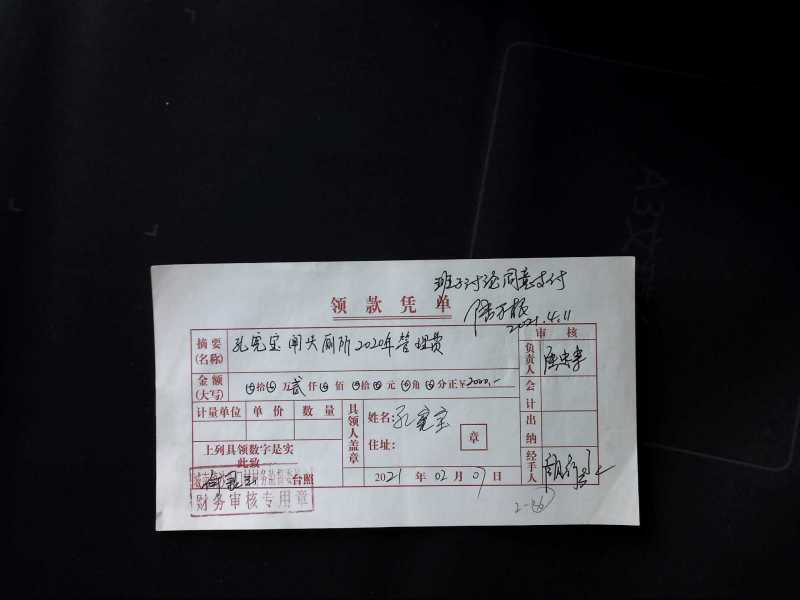 班子讨论同意支付
领款凭单
2021.4.11
审核
摘要(名称)
孔宪宝闸头厕所2020年管理费
负责人
金额(大写)
⊗拾⊗万贰仟⊗佰⊗拾⊗元⊗角⊗分正¥2000.-
会计
计量单位 单价 数量
具领人盖章
姓名:孔宪宝
住址:
章
出纳
上列具领数字是实
此致
台照
财务审核专用章
2021年02月07日
经手人